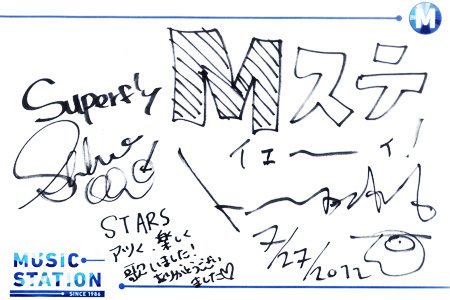 M
Superfly
Mステ
イエーイ!
STARS
アツく楽しく
歌いました!
ありがとうござい
ました♡
7/27/2012
MUSIC
STATION
SINCE 1986